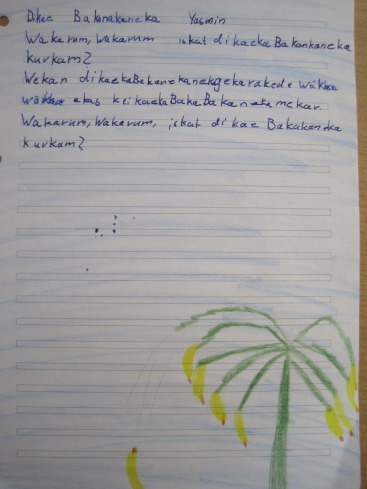 Dikae Bakanakaneka Yasmin
Wakarum, wakarum iskat dikaeka Bakankaneka
kurkam?
Wekan dikaekaBakanekanekagekarakede
ekas keikaekaBakaBakanekamekar.
Wakarum, Wakarum, iskat dikae Bakakaneka
kurkam?